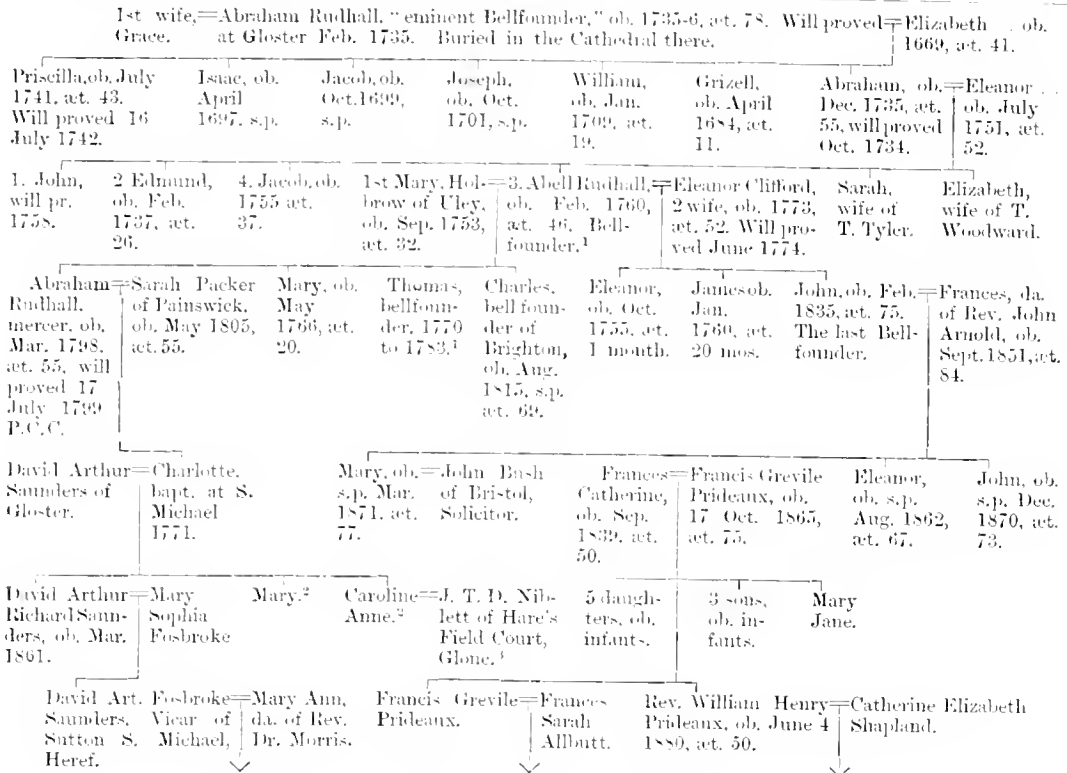 1st wife,=Abraham Rudhall, "eminent Bellfounder," ob. 1735-6, æt. 78. Will proved=Elizabeth . ob.
Grace. at Gloster Feb. 1735. Buried in the Cathedral there. 1669, æt. 41.
Priscilla, ob. July
1741, æt. 43.
Will proved 16
July 1742.
Isaac, ob.
April
1697, s.p.
Jacob, ob.
Oct. 1699,
s.p.
Joseph,
ob. Oct.
1701, s.p.
William,
ob. Jan.
1709, æt.
19.
Grizell,
ob. April
1684, æt.
11.
Abraham, ob.=
Dec. 1735, æt.
55, will proved
Oct. 1734.
Eleanor . .
ob. July
1751, æt.
52.
1. John,
will pr.
1758.
2 Edmund,
ob. Feb.
1737, æt.
26.
4. Jacob, ob.
1755 æt.
37.
1st Mary, Hol-
brow of Uley,
ob. Sep. 1753,
æt. 32.
=3. Abell Rudhall,=
ob. Feb. 1760,
æt. 46, Bell-
founder.¹
Eleanor Clifford,
2 wife, ob. 1773,
æt. 52. Will pro-
ved June 1774.
Sarah,
wife of
T. Tyler.
Elizabeth,
wife of T.
Woodward.
Abraham=
Rudhall,
mercer, ob.
Mar. 1798,
æt. 55, will
proved 17
July 1799
P.C.C.
Sarah Packer
of Painswick,
ob. May 1805,
æt. 55.
Mary, ob.
May
1766, æt.
20.
Thomas,
bellfoun-
der, 1770
to 1783.¹
Charles,
bell foun-
der of
Brighton,
ob. Aug.
1815, s.p.
æt. 69.
Eleanor,
ob. Oct.
1755, æt.
1 month.
James ob.
Jan.
1760, æt.
20 mos.
John, ob. Feb.=
1835, æt. 75.
The last Bell-
founder.
Frances, da.
of Rev. John
Arnold, ob.
Sept. 1851, æt.
84.
David Arthur=
Saunders of
Gloster.
Charlotte,
bapt. at S.
Michael
1771.
Mary, ob.=
s.p. Mar.
1871, æt.
77.
John Bush
of Bristol,
Solicitor.
Frances=
Catherine,
ob. Sep.
1839, æt.
50.
Francis Grevile
Prideaux, ob.
17 Oct. 1865,
æt. 75.
Eleanor,
ob. s.p.
Aug. 1862,
æt. 67.
John, ob.
s.p. Dec.
1870, æt.
73.
David Arthur=
Richard Saun-
ders, ob. Mar.
1861.
Mary
Sophia
Fosbroke
Mary.²
Caroline=
Anne.²
J. T. D. Nib-
lett of Hare's
Field Court,
Glouc.
5 daugh-
ters, ob.
infants.
3 sons,
ob. in-
fants.
Mary
Jane.
David Art. Fosbroke=
Saunders, Vicar of
Sutton S. Michael,
Heref.
Mary Ann,
da. of Rev.
Dr. Morris.
Francis Grevile=
Prideaux.
Frances
Sarah
Allbutt.
Rev. William Henry=
Prideaux, ob. June 4
1880, æt. 50.
Catherine Elizabeth
Shapland.